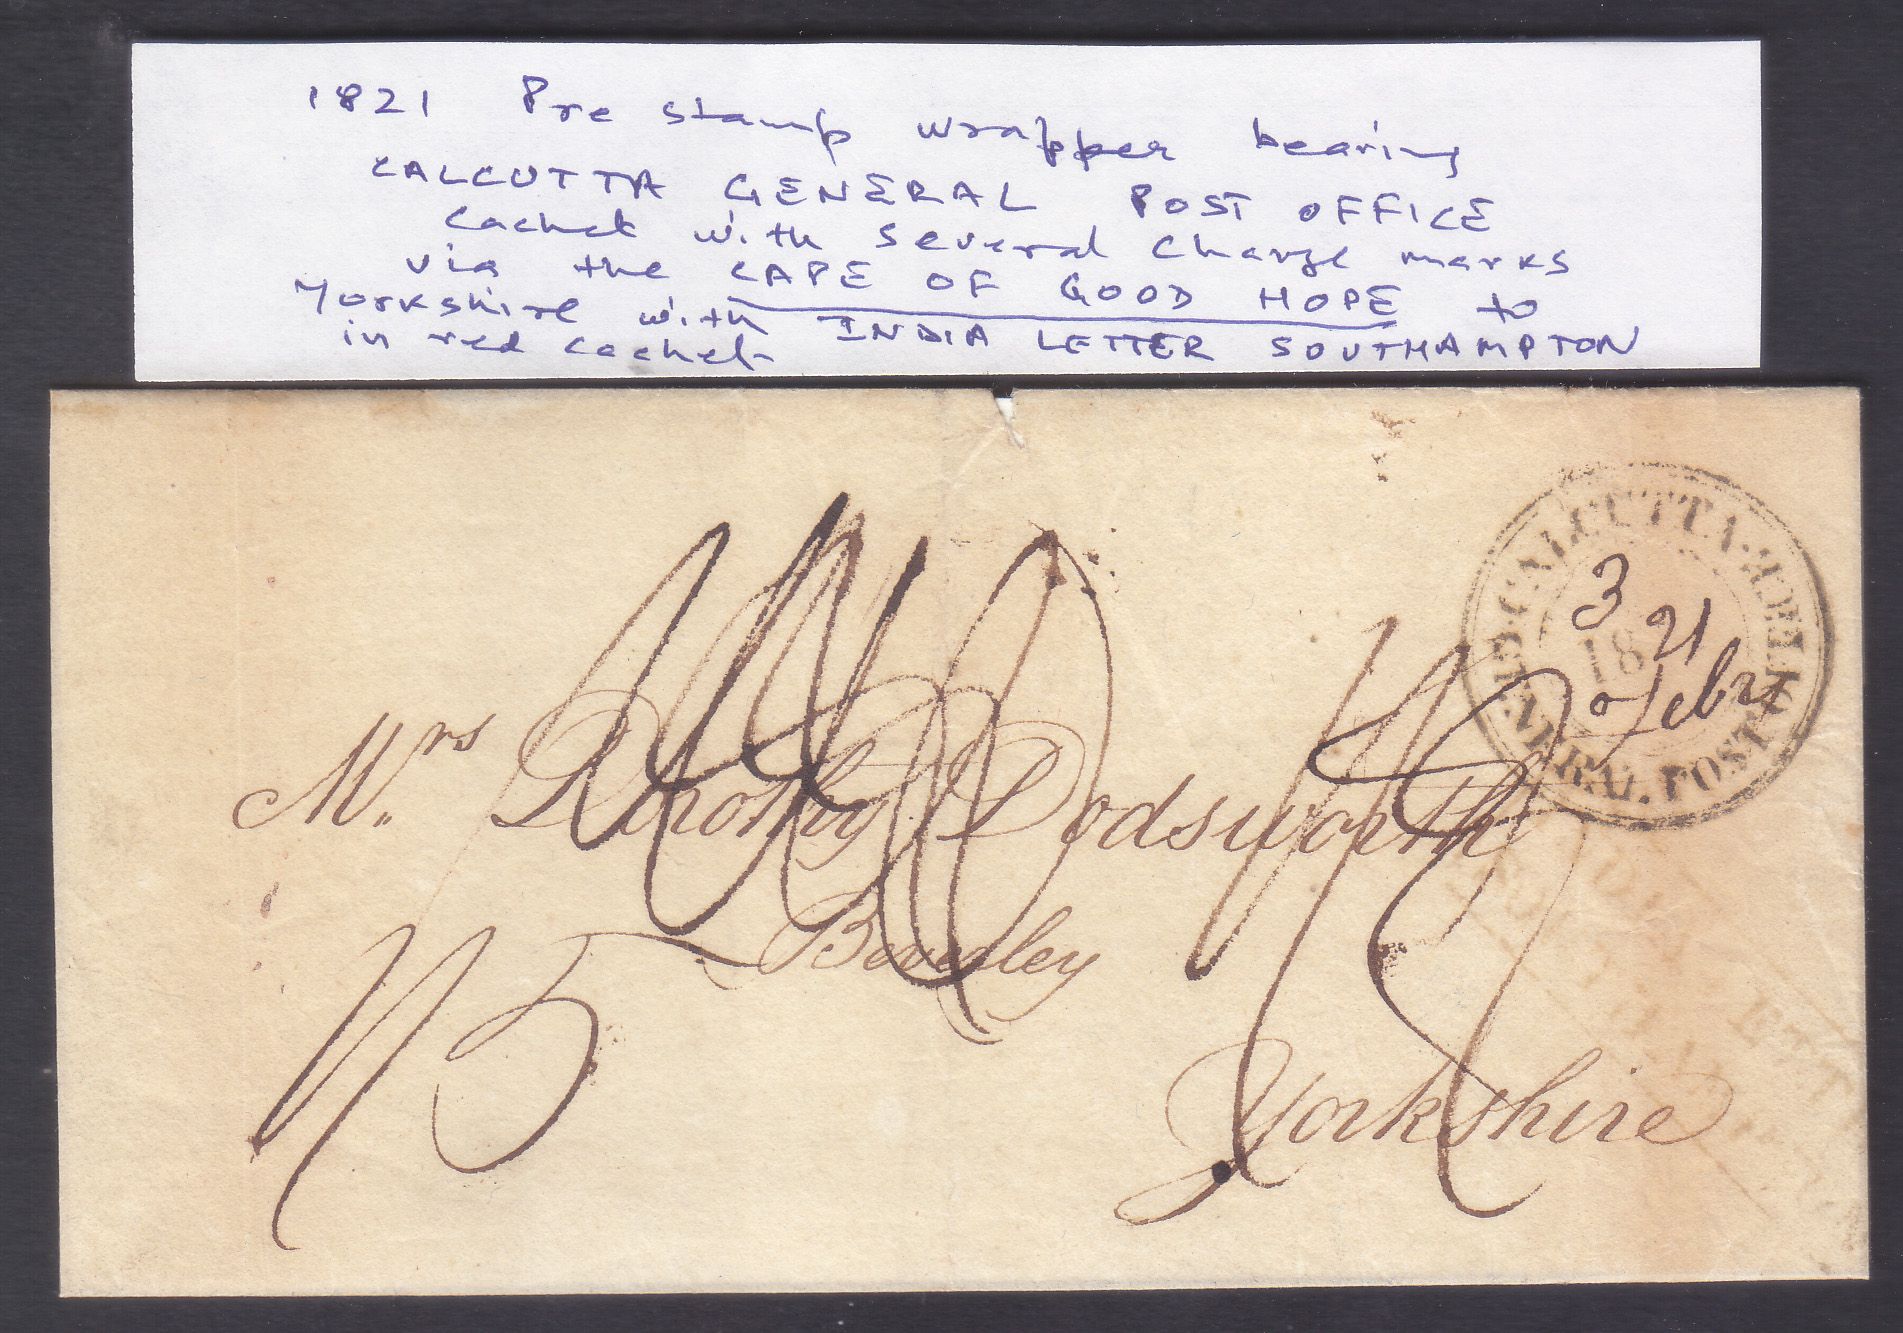 1821 Pre stamp wrapper bearing
CALCUTTA GENERAL POST OFFICE
cachet with several charge marks
via the CAPE OF GOOD HOPE to
Yorkshire with INDIA LETTER SOUTHAMPTON
in red cachet
CALCUTTA
GENERAL POST OFFICE
3
18 21
Feby
Mrs Dorothy Dodsworth
Beverley
Yorkshire